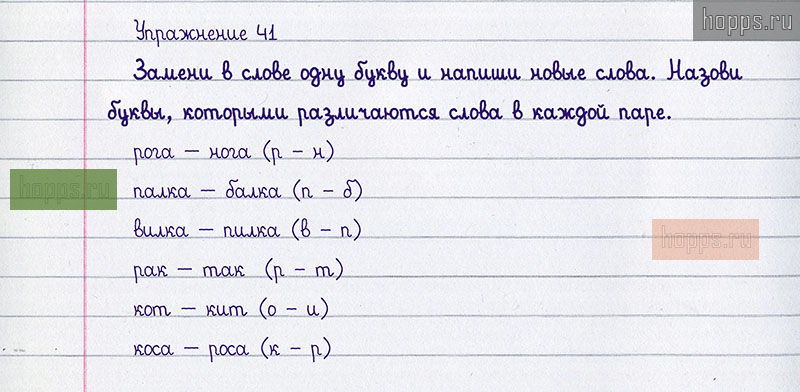 hopps.ru
Упражнение 41
Замени в слове одну букву и напиши новые слова. Назови
буквы, которыми различаются слова в каждой паре.
рога – нога (р – н)
hopps.ru
палка – балка (п – б)
вилка – пилка (в – п)
hopps.ru
рак – так (р – т)
кот – кит (о – и)
коса – роса (к – р)